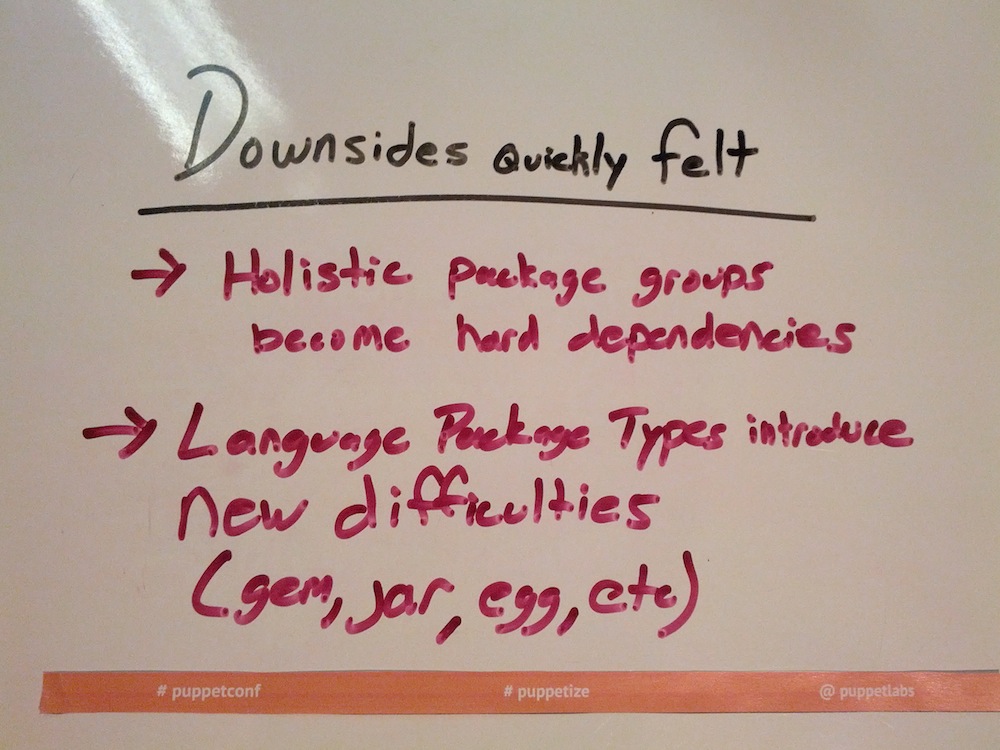 Downsides Quickly felt
→ Holistic package groups
become hard dependencies
→ Language Package Types introduce
new difficulties
(gem, jar, egg, etc)
# puppetconf # puppetize @ puppetlabs